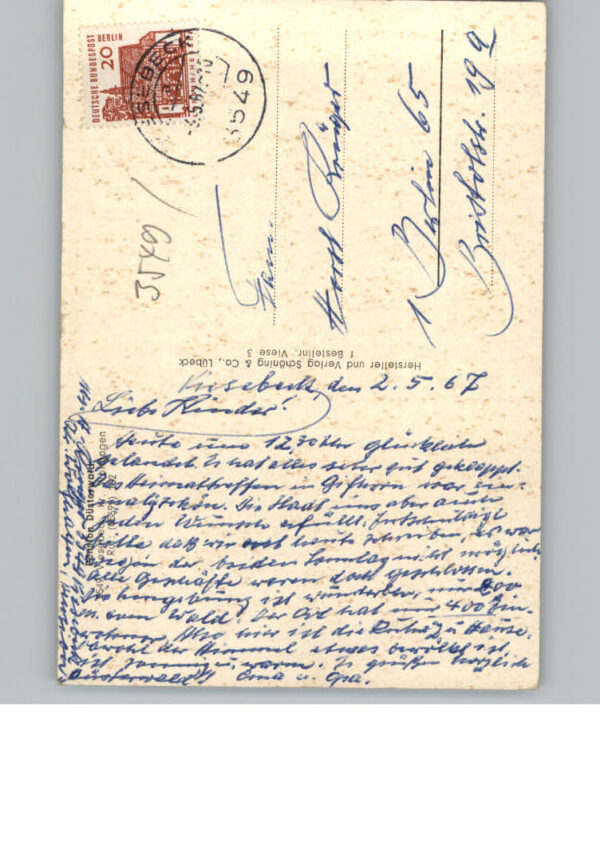 DEUTSCHE BUNDESPOST BERLIN
20
3549
3549
Fam.
Horst Krüger
1 Berlin 65
Bristolstr. 19
Hersteller und Verlag Schöning & Co., Lübeck
1 Bestellnr. Viese 3
Viesebeck, den 2.5.67
Liebe Kinder!
Heute um 12.30 Uhr glücklich
gelandet. Es hat alles sehr gut geklappt.
Heimattreffen in Gifhorn war ein-
malig schön. Die Stadt uns aber auch
den Wunsch erfüllt. Entschuldigt
bitte daß wir erst heute schreiben, es war
in der beiden Sonntag nicht möglich
Alle Geschäfte waren doch geschlossen.
Die Umgebung ist wunderbar, nur 200
m zum Wald. Der Ort hat nur 400 Ein-
wohner. Also hier ist die Ruhe zu Hause.
Obwohl der Himmel etwas bewölkt ist,
ist warm. Es grüßen herzlich
Oma u. Opa.
Pension Düsterwald